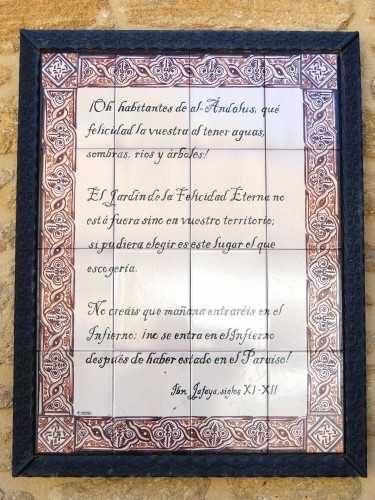 ¡Oh habitantes de al-Ándalus, qué
felicidad la vuestra al tener aguas,
sombras, ríos y árboles!
El Jardín de la Felicidad Eterna no
está fuera sino en vuestro territorio;
si pudiera elegir es este lugar el que
escogería.
No creáis que mañana entraréis en el
Infierno: ¡no se entra en el Infierno
después de haber estado en el Paraíso!
Ibn Jafaya, siglos XI-XII